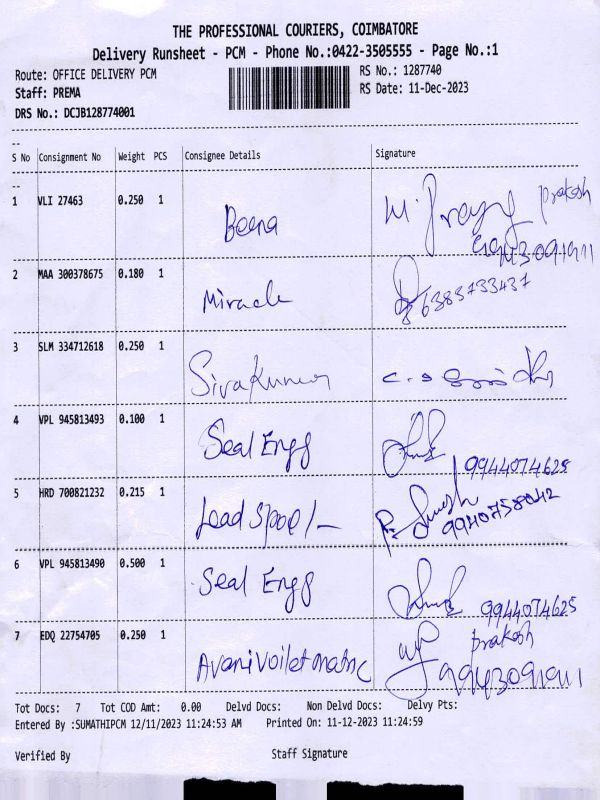 THE PROFESSIONAL COURIERS, COIMBATORE
Delivery Runsheet - PCM - Phone No.:0422-3505555 - Page No.:1
Route: OFFICE DELIVERY PCM RS No.: 1287740
Staff: PREMA RS Date: 11-Dec-2023
DRS No.: DCJB128774001
S No Consignment No Weight PCS Consignee Details Signature
1 VLI 27463 0.250 1 Beena prakash
2 MAA 300378675 0.180 1 Miracle 6383733437
3 SLM 334712618 0.250 1 Sivakumar
4 VPL 945813493 0.100 1 Seal Engg 9944074625
5 HRD 700821232 0.215 1 Lead Spoel/- 9940758042
6 VPL 945813490 0.500 1 Seal Engg 9944074625
7 EDQ 22754705 0.250 1 Avani Voilet matric prakash
9943091911
Tot Docs: 7 Tot COD Amt: 0.00 Delvd Docs: Non Delvd Docs: Delvy Pts:
Entered By :SUMATHIPCM 12/11/2023 11:24:53 AM Printed On: 11-12-2023 11:24:59
Verified By Staff Signature